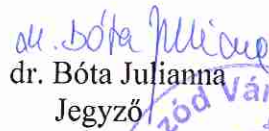 dr. Bóta Julianna
dr. Bóta Julianna
Jegyző
ződ Vár